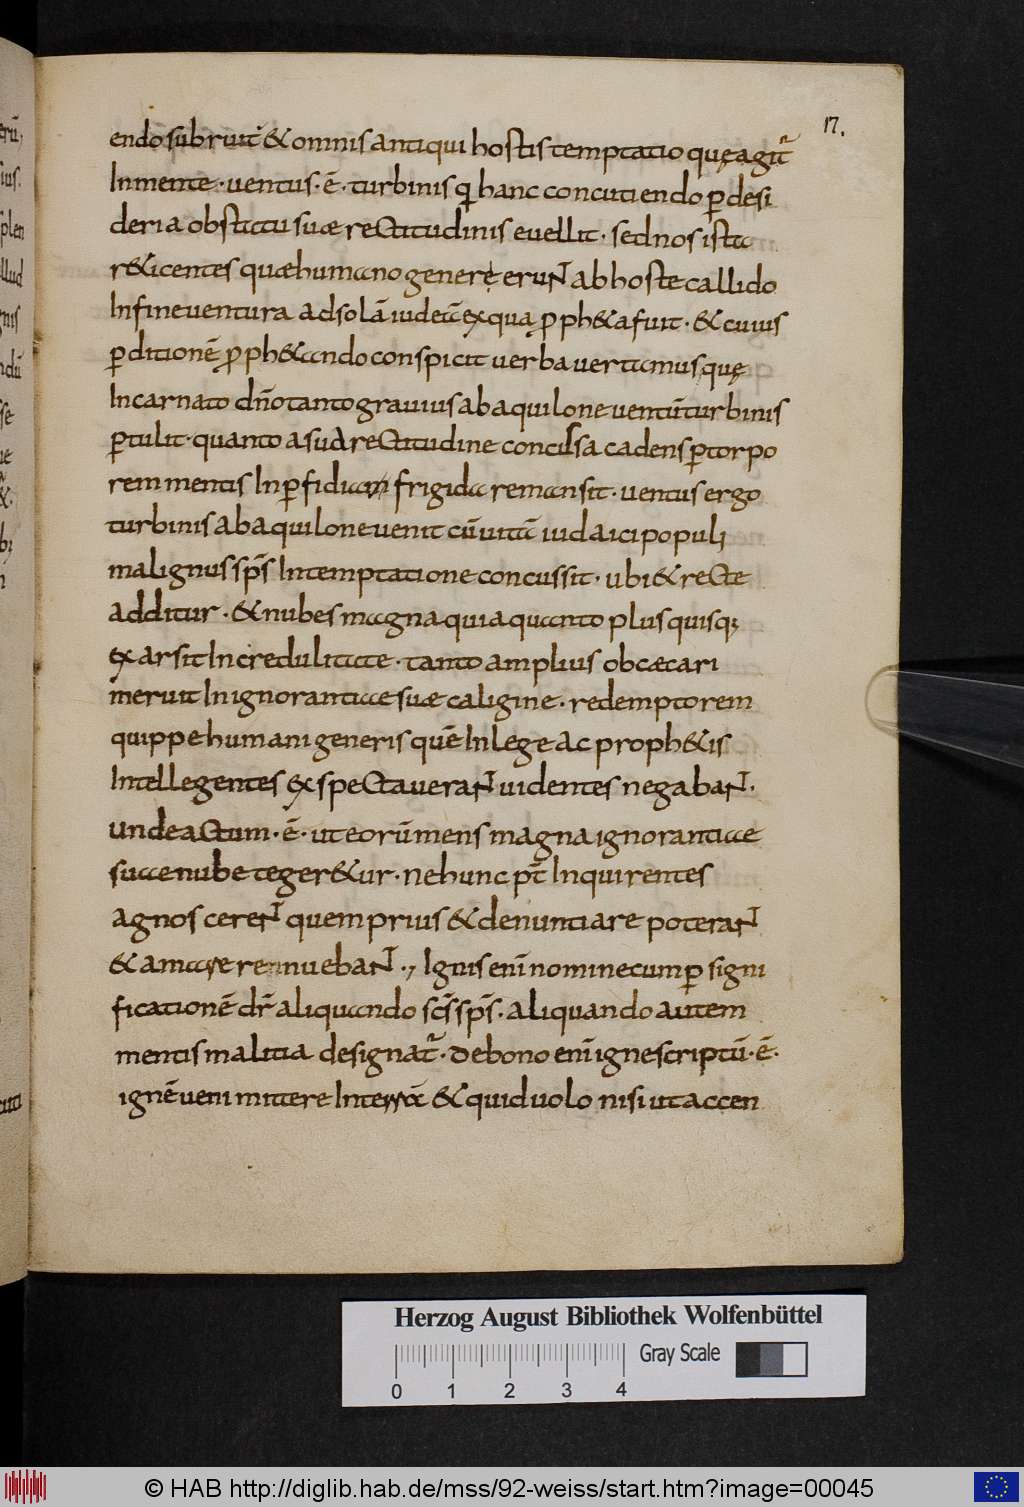 17.
endo subruit & omnis antiqui hostis temptatio quę agit᷑
In mente · uentus · ē · turbinis qi hanc concutiendo ꝑ desi
deria ob statu suae rectitudinis euellit · sed nos ista
r&icentes quae humano genere erunt ab hoste callido
In fine uentura ad solā iudeā ex qua ꝓph&a fuit · & cuius
ꝑditionē ꝓph&ando conspicit uerba uertamus quę
Incarnato dn̄o tanto grauius ab aquilone uentū turbinis
ꝑtulit · quanto a sua rectitudine concussa cadens ꝑ torpo
rem mentis In ꝑfidia frigida remansit · uentus ergo
turbinis ab aquilone uenit cū uitā iudaici populi
malignus sp̄s In temptatione concussit · ubi & recte
additur · & nubes magna quia quanto plus quisq;
exarsit Incredulitate · tanto amplius obcaecari
meruit In ignorantiae suae caligine · redemptorem
quippe humani generis quē In lege ac proph&is
Intellegentes exspectauerant uidentes negabant ·
unde actum · ē · ut eorū mens magna ignorantiae
suae nube teger&ur · ne hunc pt̄ Inquirentes
agnoscerent quem prius & denuntiare poterant
& amare rennuebant · Ignis enī nomine cum ꝑ signi
ficationē dr̄ aliquando sc̄s sp̄s · aliquando autem
mentis malitia designat᷑ · De bono enī igne scriptū · ē ·
ignē ueni mittere In terrā & quid uolo nisi ut accen
Herzog August Bibliothek Wolfenbüttel
Gray Scale
0 1 2 3 4
© HAB http://diglib.hab.de/mss/92-weiss/start.htm?image=00045